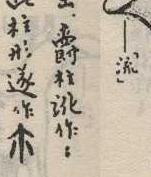 「流」
出，爵柱訛作：
此柱形遂作